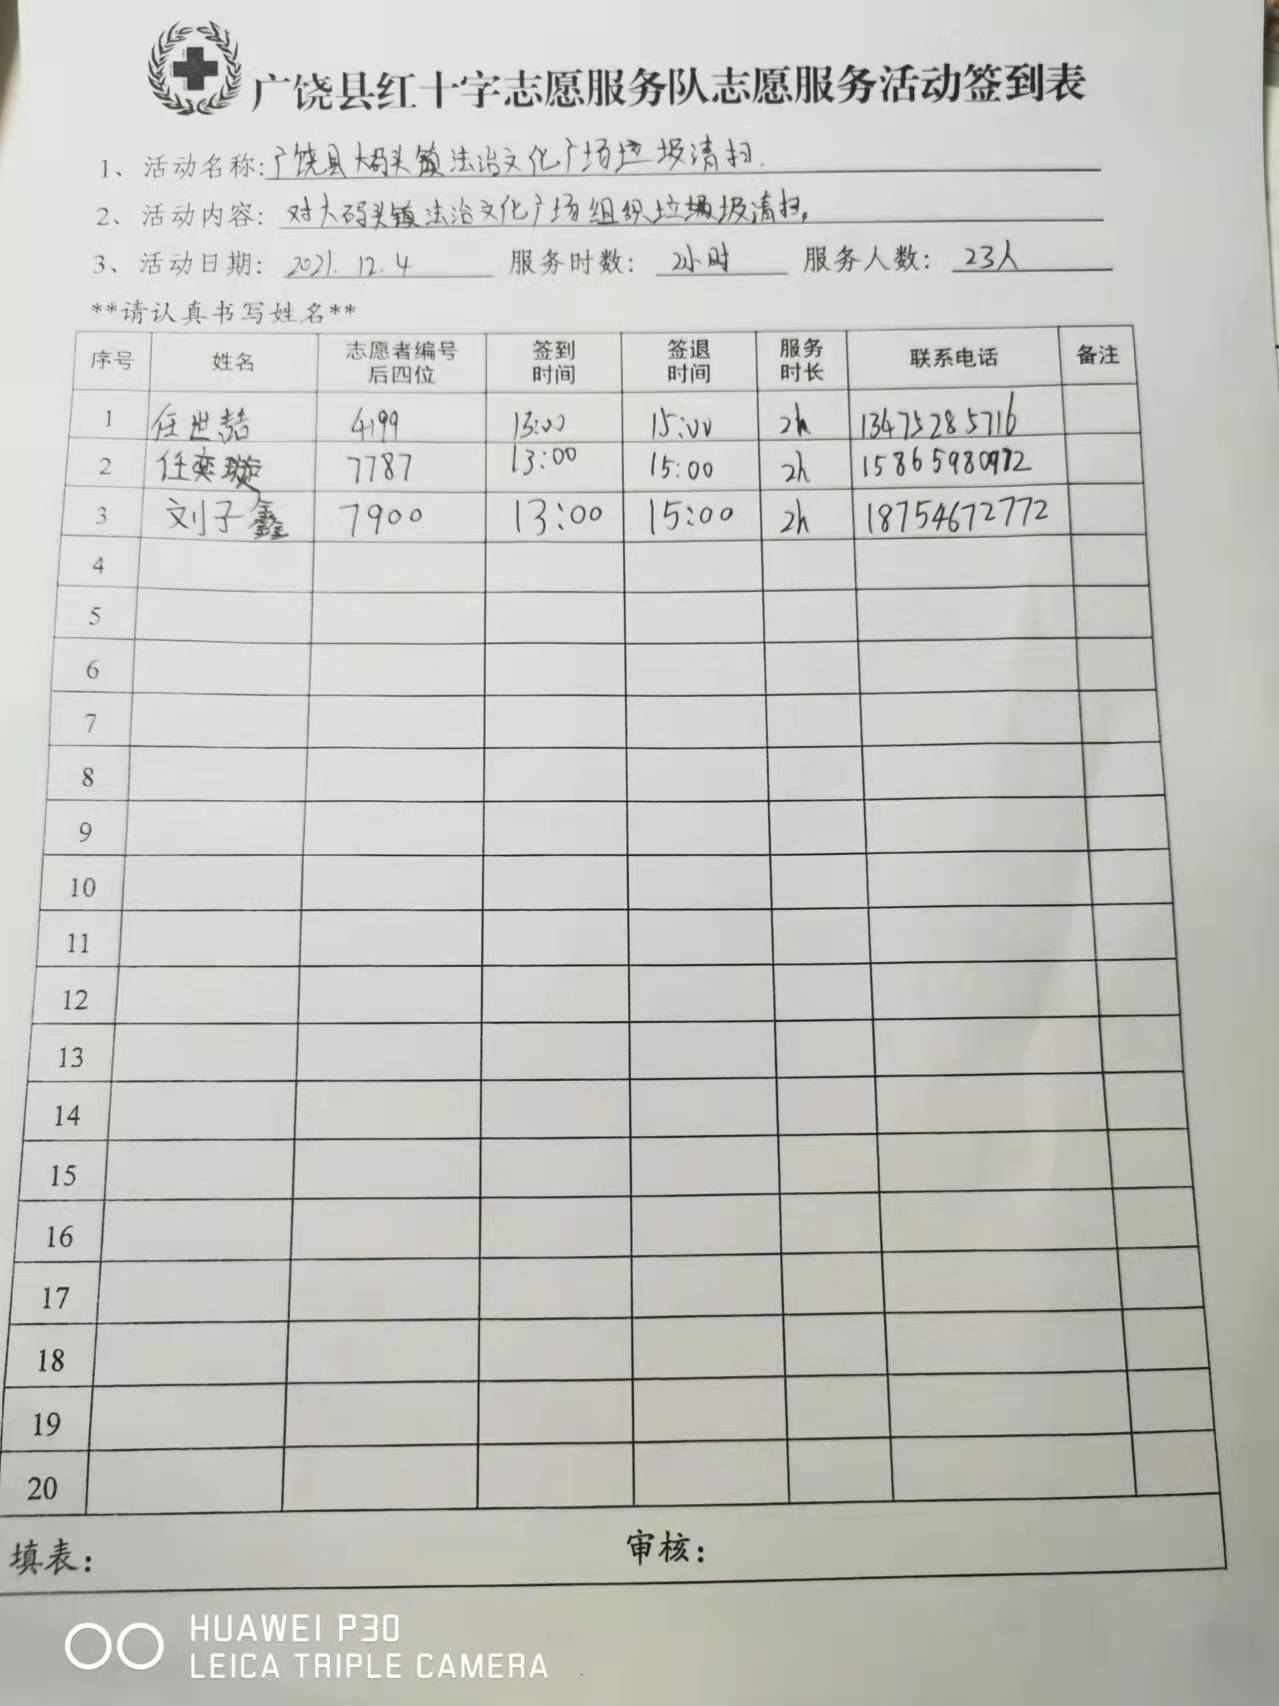 广饶县红十字志愿服务队志愿服务活动签到表
1、活动名称:广饶县大码头镇法治文化广场垃圾清扫.
2、活动内容: 对大码头镇法治文化广场组织垃圾清扫。
3、活动日期: 2021.12.4 服务时数: 2小时 服务人数: 23人
**请认真书写姓名**
序号 姓名 志愿者编号后四位 签到时间 签退时间 服务时长 联系电话 备注
1 任世喆 4199 13:00 15:00 2h 13475285716
2 任奕璇 7787 13:00 15:00 2h 15865980972
3 刘子鑫 7900 13:00 15:00 2h 18754672772
4
5
6
7
8
9
10
11
12
13
14
15
16
17
18
19
20
填表: 审核:
HUAWEI P30
LEICA TRIPLE CAMERA